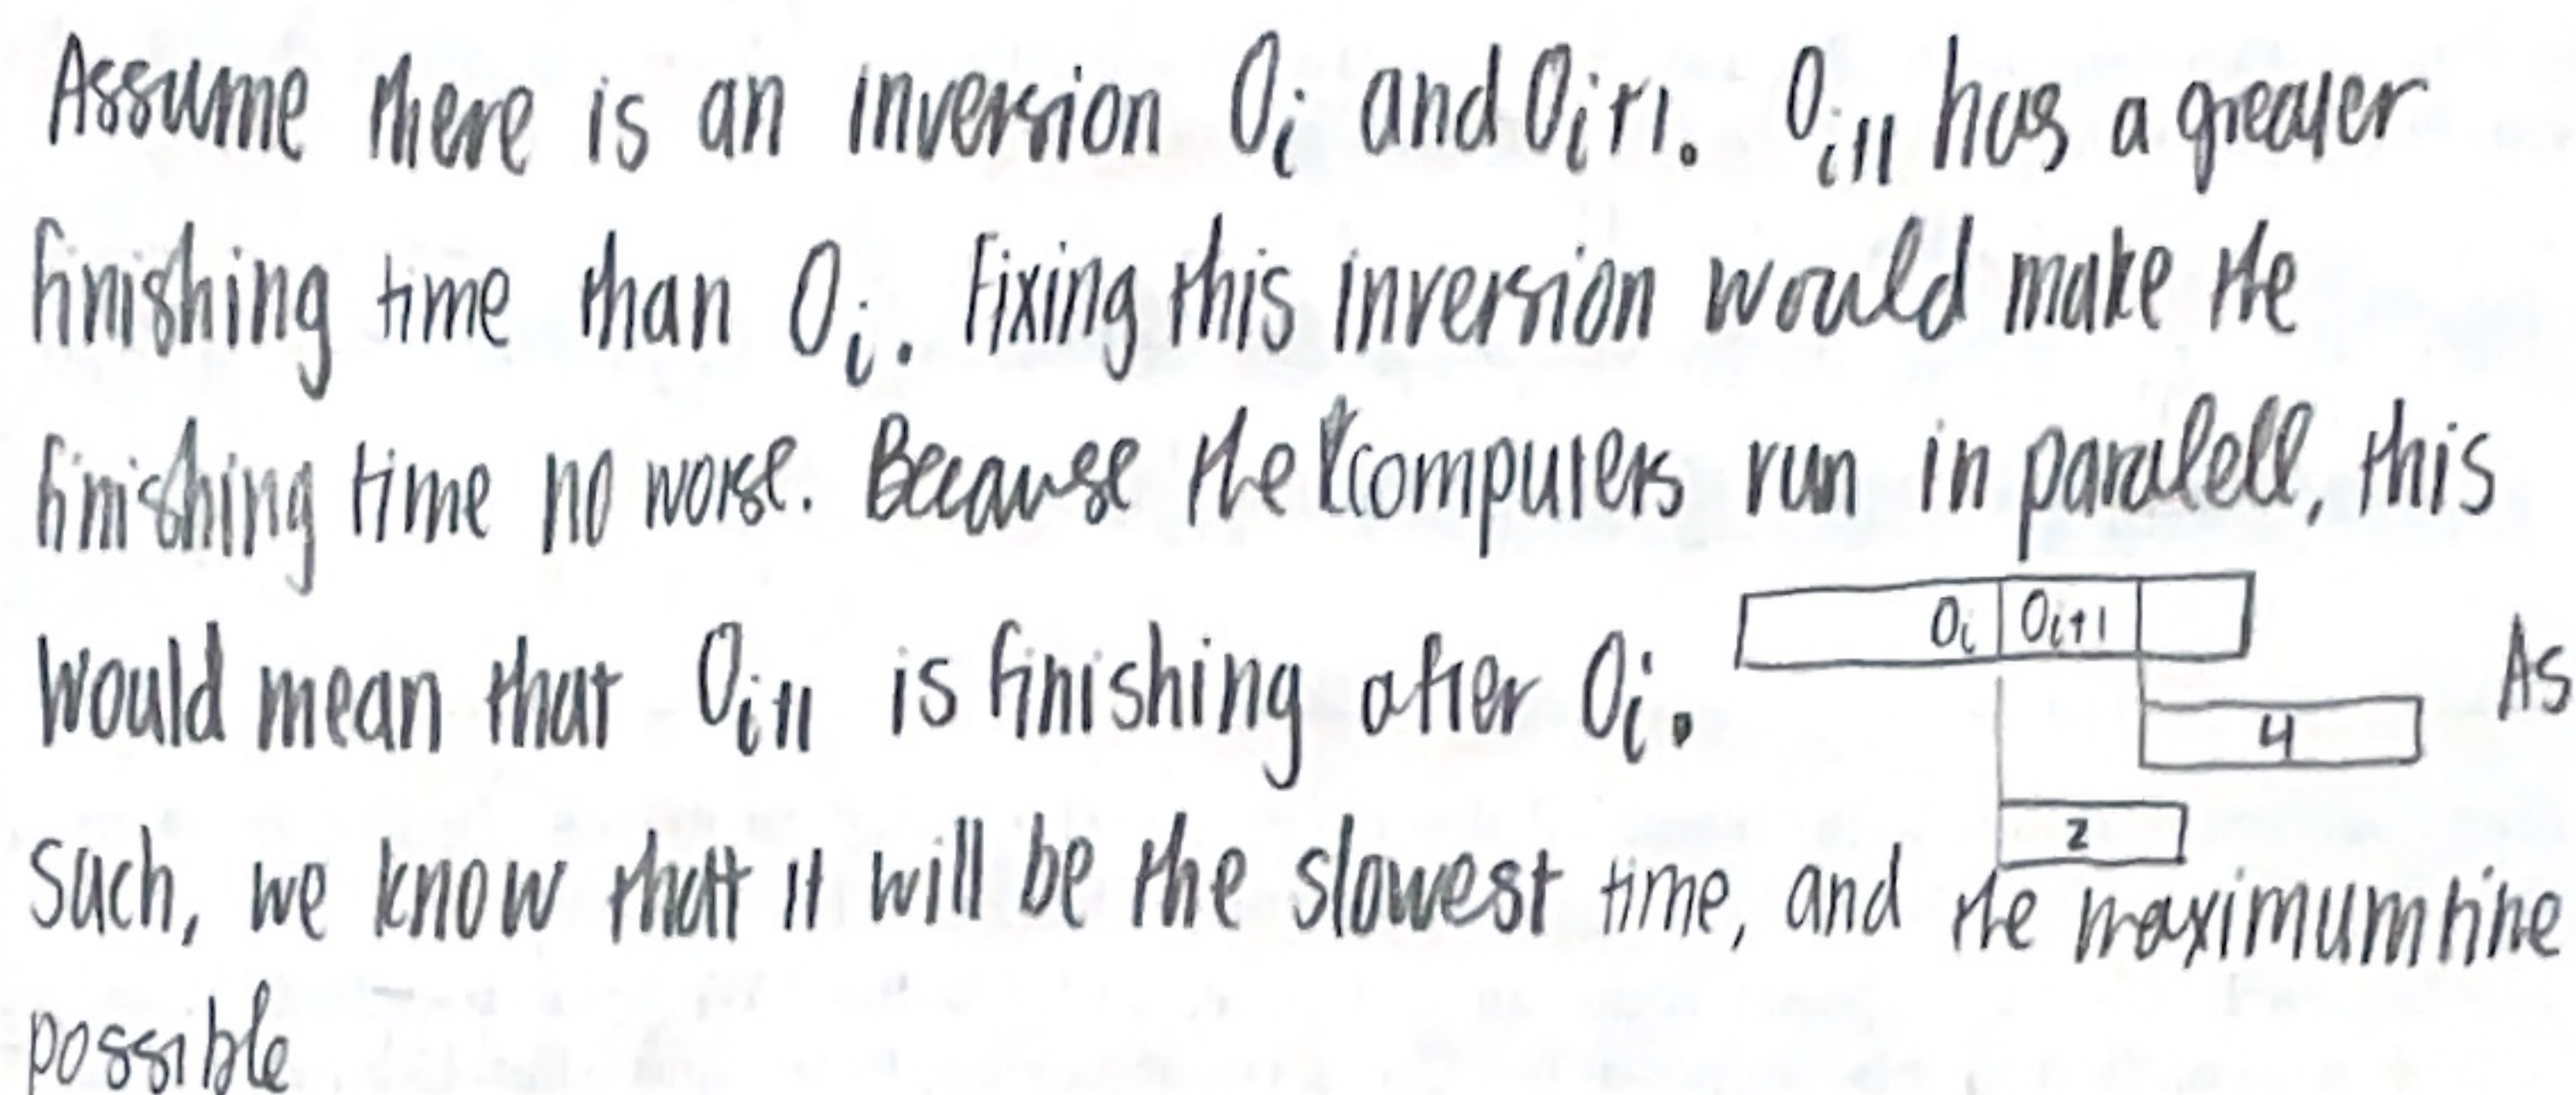 Assume there is an inversion Oi and Oi+1. Oi+1 has a greater
finishing time than Oi. Fixing this inversion would make the
finishing time no worse. Because the computers run in paralell, this
would mean that Oi+1 is finishing after Oi. As
Oi Oi+1
4
2
such, we know that it will be the slowest time, and the maximum time
possible